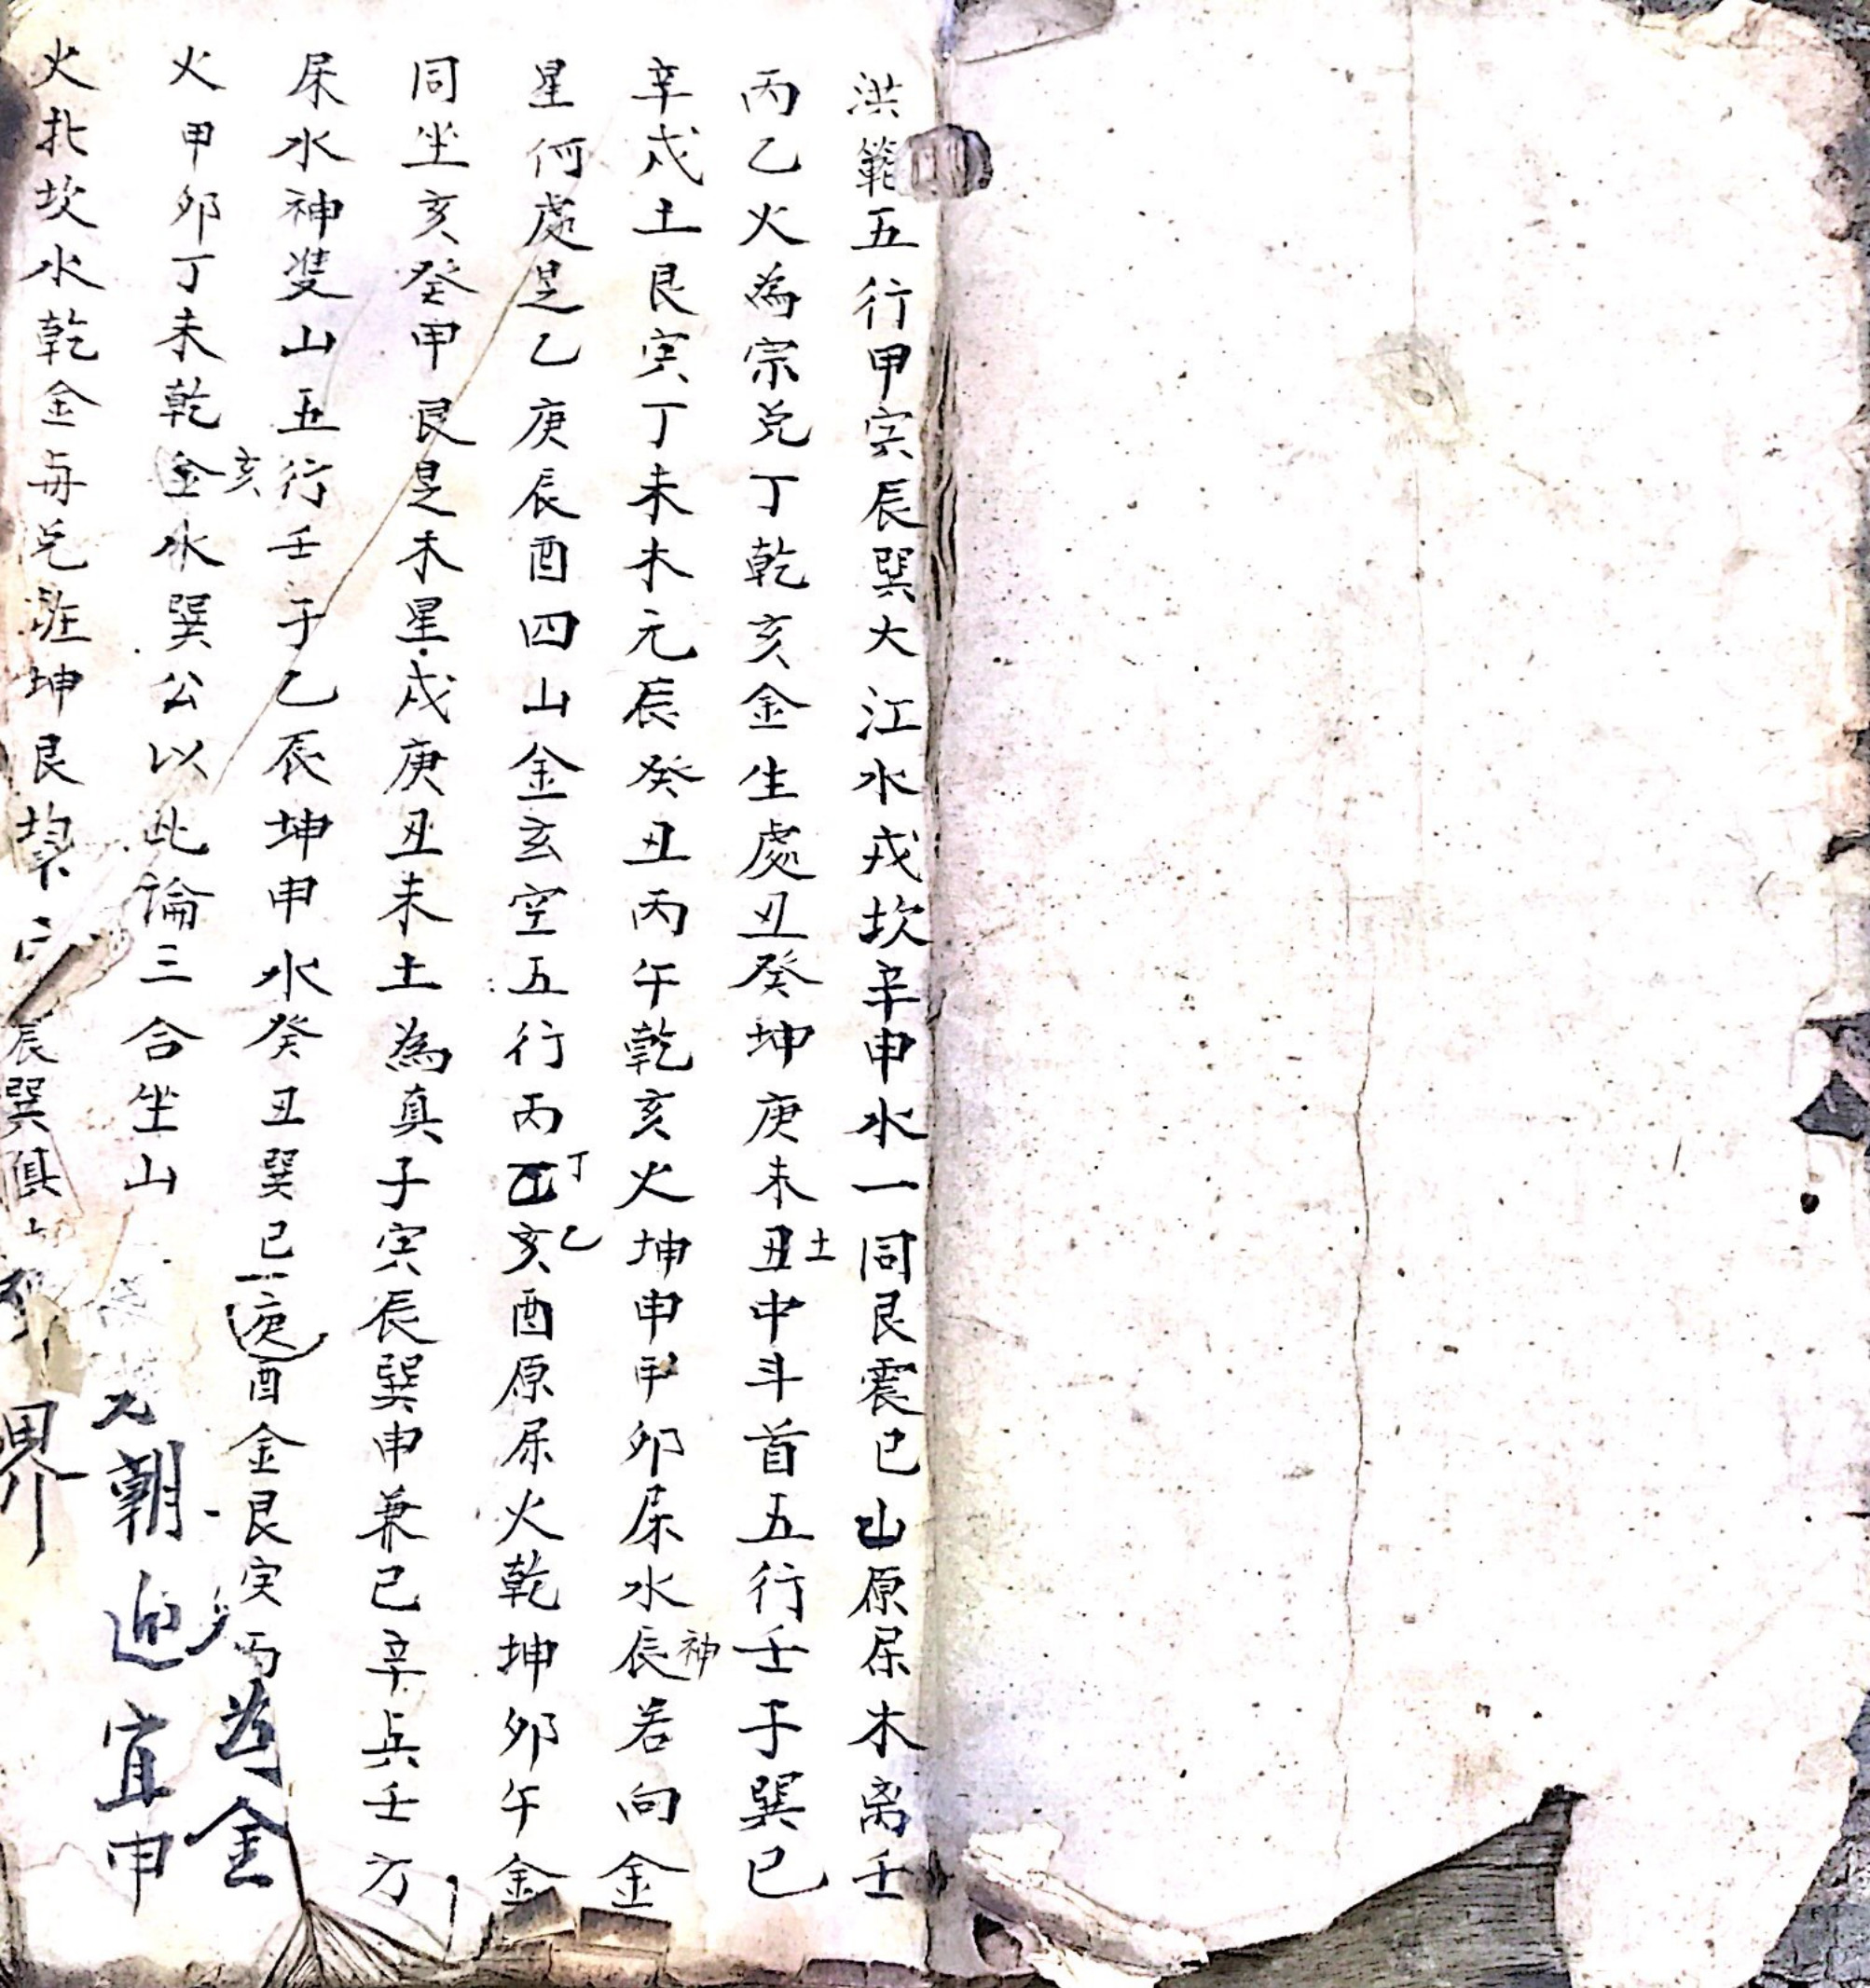 洪範五行甲寅辰巽大江水戌坎辛申水一同艮震巳山原屬木离壬
丙乙火為宗兑丁乾亥金生處丑癸坤庚未丑土中斗首五行壬子巽巳
辛戌土艮寅丁未木元辰癸丑丙午乾亥火坤申甲卯屎水辰神若向金
星何處是乙庚辰酉四山金玄空五行丙丁乙亥酉原屎火乾坤卯午金
同坐亥癸甲艮是木星戌庚丑未土為真子寅辰巽申兼巳辛兵壬方
屎水神双山五行壬子乙辰坤申水癸丑巽巳庚酉金艮寅丙為金
火甲卯丁未乾亥金水巽公以此論三合坐山
朝迎宜申
火北坎水乾金每兑坤艮
辰巽俱
界